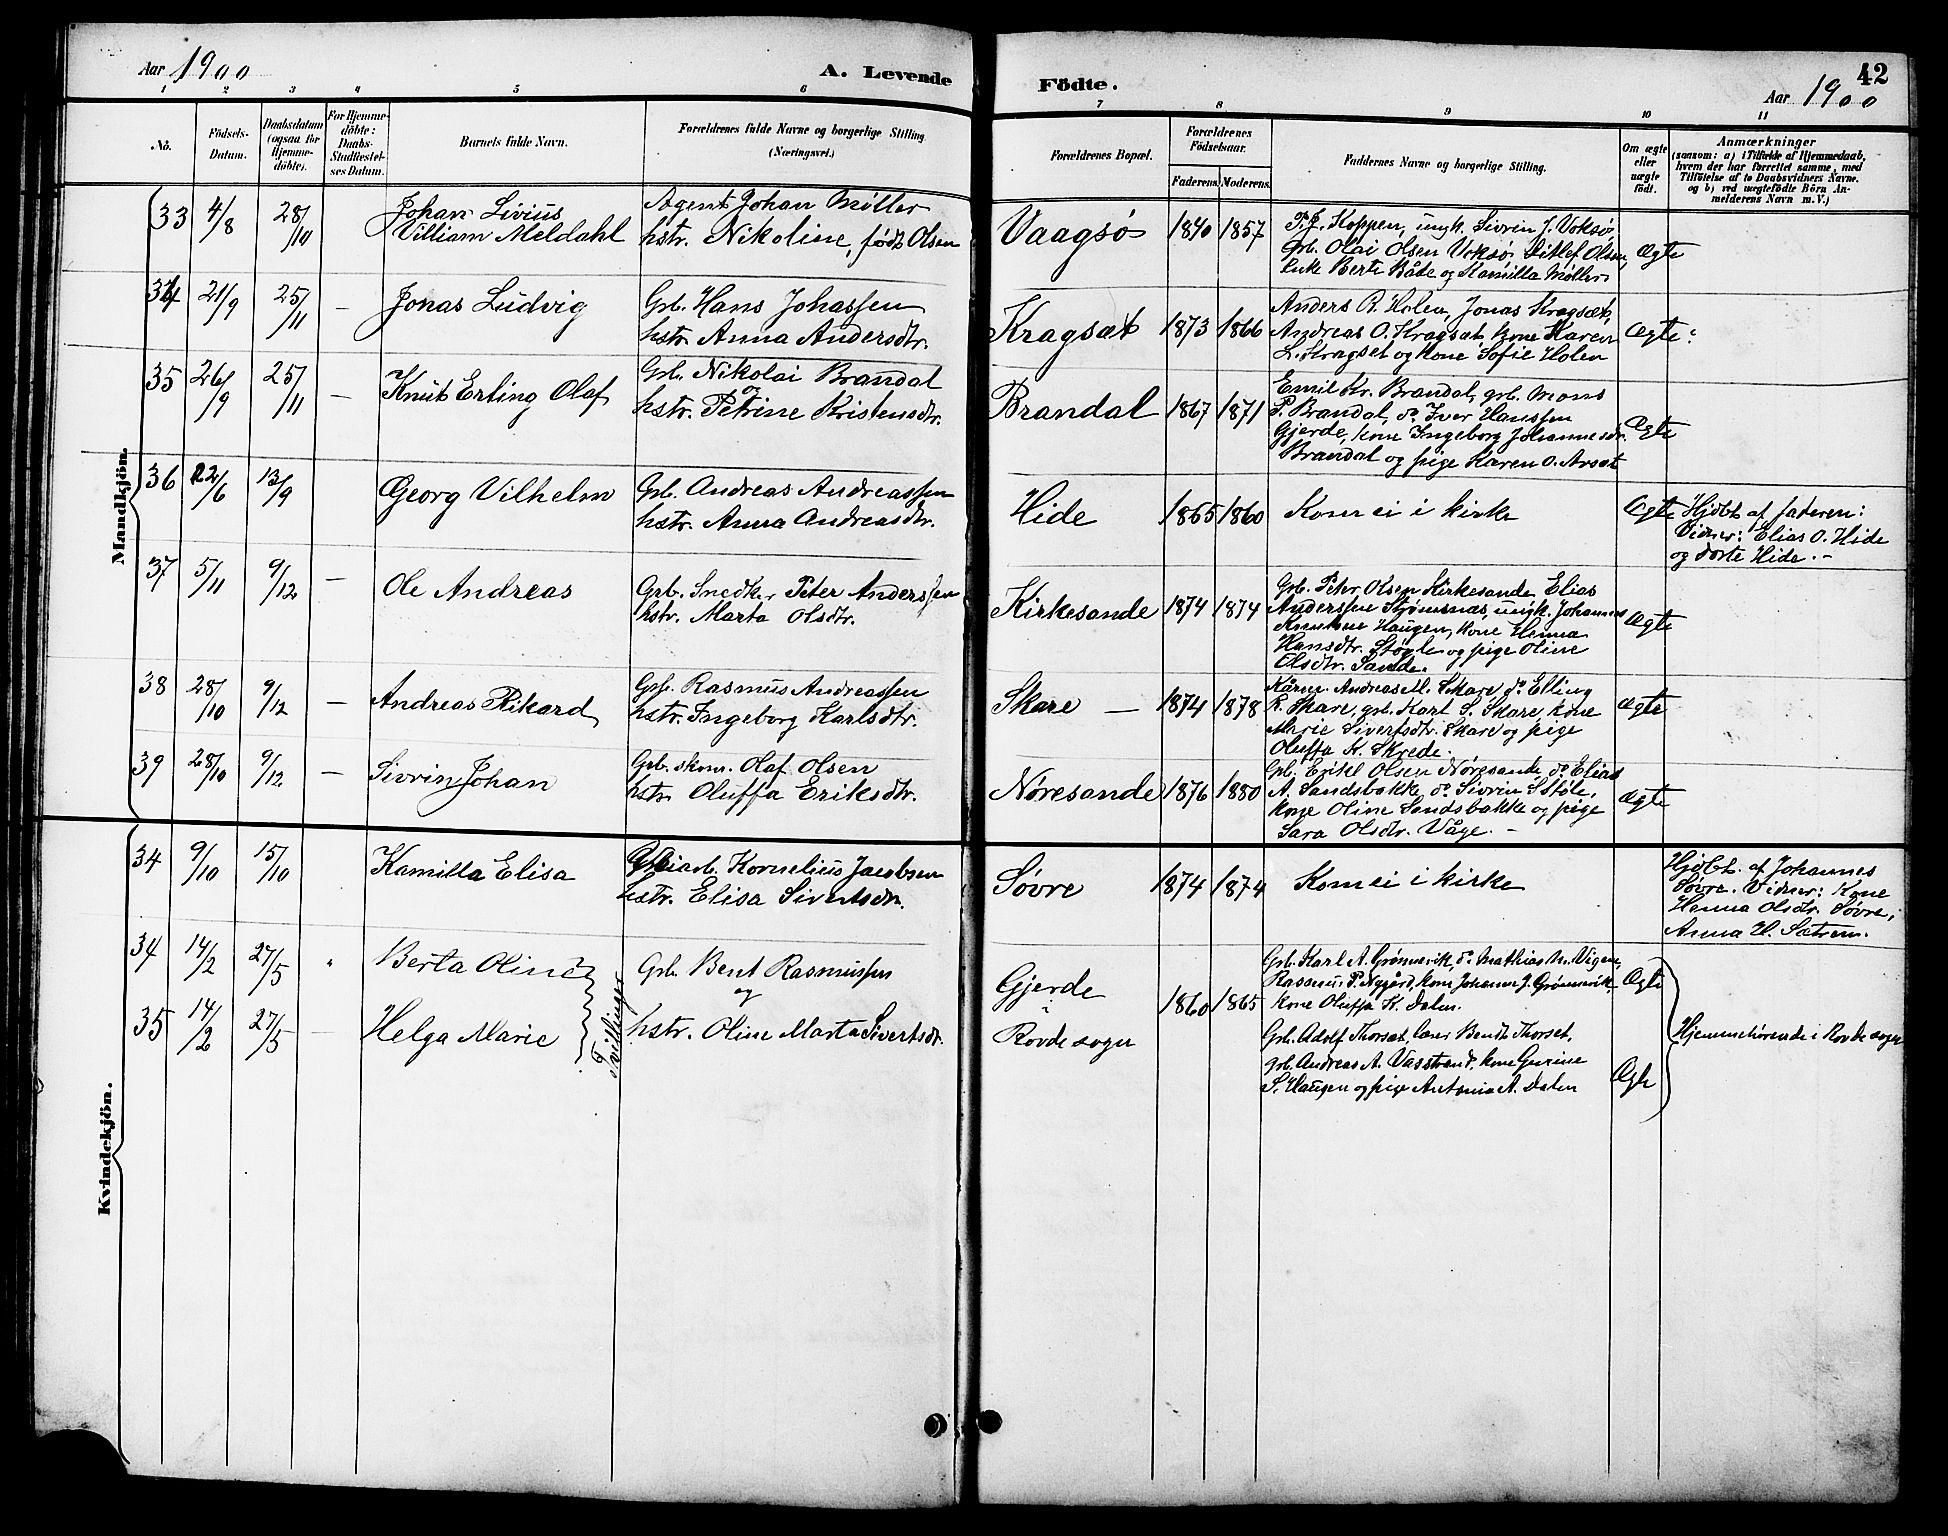 Aar 1900
A. Levende
Födte.
42
Aar 1900
1 2 3 4 5 6 7 8 9 10 11
No.
Födsels-
Datum.
Daabsdatum
(ogsaa for
Hjemme-
döbte).
For Hjemme-
döbte:
Daabs-
Stadfæstel-
ses Datum.
Barnets fulde Navn.
Forældrenes fulde Navne og borgerlige Stilling.
(Næringsvei.)
Forældrenes Bopæl.
Forældrenes
Födselsaar.
Faderens. Moderens.
Faddernes Navne og borgerlige Stilling.
Om ægte
eller
uægte
födt.
Anmærkninger
(saasom: a) i Tilfælde af Hjemmedaab,
hvem der har forrettet samme, med
Tilföielse af to Daabsvidners Navne.
og b) ved uægtefödte Börn An-
melderens Navn m. V.)
Mandkjön.
33 4/8 28/10 Johan Livius
Villiam Meldahl
Agent Johan Möller
hstr. Nikoline, födt Olsen
Vaagsö 1840 1857
P.J. Koppen, ungk. Sivrin J. Voksö
grb. Olai Olsen Voksö Ditlef Olsen,
Enke Berte Både og Kamilla Møller
Ægte
34 21/9 25/11 — Jonas Ludvig
Grb. Hans Johassen
hstr. Anna Andersdtr.
Kragsæt 1873 1866
Anders R. Holen, Jonas Kragsæt,
Andreas O. Kragsæt, kone Karen
L. Kragset og kone Sofie Holen
Ægte
35 26/9 25/11 — Knut Erling Olaf
Grb. Nikolai Brandal
o
hstr. Petrine Kristensdtr.
Brandal 1867 1871
Emil Kr. Brandal, grb. Mons
P. Brandal, do Iver Hanssen
Gjerde, kone Ingeborg Johannesdr.
Brandal og pige Karen O. Arsæt
Ægte
36 22/6 13/9 Georg Vilhelm
Grb. Andreas Andreassen
hstr. Anna Andreasdtr.
Hide 1865 1860
Kom ei i kirke
Ægte
Hjdbt. af faderen:
Vidner: Elias O. Hide
og Dorte Hide. —
37 5/11 9/12 — Ole Andreas
Grb. Snedker Peter Anderssen
hstr. Marta Olsdtr.
Kirkesande 1874 1874
Grb. Peter Olsen Kirkesande Elias
Anderssen Strømsnæs, ungk. Johannes
Knutsen Haugen, kone Henna
Hansdtr. Støyle og pige Oline
Olsdtr. Sande.
Ægte
38 28/10 9/12 — Andreas Rikard
Grb. Rasmus Andreassen
hstr. Ingeborg Karlsdtr.
Skare — 1874 1878
Kårm. Andreas M. Skare do Elling
R. Skare, grb. Karl S. Skare, kone
Marie Sivertsdtr. Skare og pige
Oluffa K. Skrede.
Ægte
39 28/10 9/12 — Sivrin Johan
Grb. skom. Olaf Olsen
hstr. Oluffa Eriksdtr.
Nøresande 1876 1880
Grb. Erikl Olsen Nøresande, do Elias
A. Sandsbakke do Sivrin S Støle,
kone Oline Sandsbakke og pige
Sara Olsdtr. Våge. —
Ægte
Kvindekjön.
34 9/10 15/10 Kamilla Elisa
Kornelius Jacobsen
hstr. Elisa Sivertsdtr.
Søvre 1874 1874
Kom ei i kirke
Hjdbt. af Johannes
Søvre. Vidner: Kone
Henna Olsdtr. Søvre,
Anna H. Sætrem.
34 14/2 27/5 " Berta Oline
35 14/2 27/5 — Helga Marie
Tvillinger
Grb. Bent Rasmussen
og
hstr. Oline Marta Sivertsdtr.
Gjerde
i
Rovde sogn
1860 1865
Grb. Karl A. Grønnevik, do Mathias M. Vigen,
Rasmus P. Nygård, kone Johanne J. Grønnevik,
kone Oluffa K. Dalen.
Ægte
Grb. Adolf Thorset, lærer Bendt Thorset,
grb. Andreas A. Vasstrand, kone Gurine
S. Haugen og pige Antonia A. Dalen
Ægte
Hjemmehørende i Rovde sogn